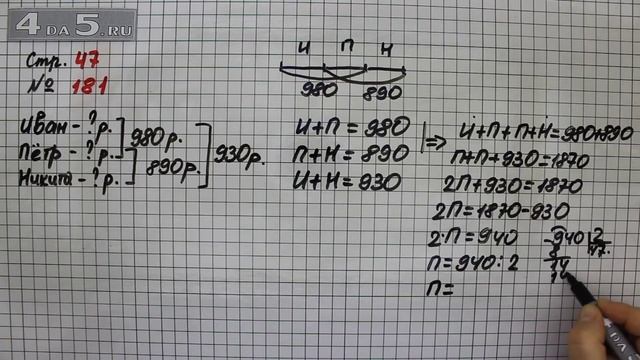 4DA5.RU
Стр. 47
№ 181
Иван - ? р.
Пётр - ? р.
Никита - ? р.
980 р.
890 р.
930 р.
И П Н
980 890
И+П = 980
П+Н = 890
И+Н = 930
=> И+П+П+Н=980+890
П+П+930=1870
2П+930=1870
2П=1870-930
2·П=940
П=940:2
П=
-940 2
8 47.
14
14
4DA5